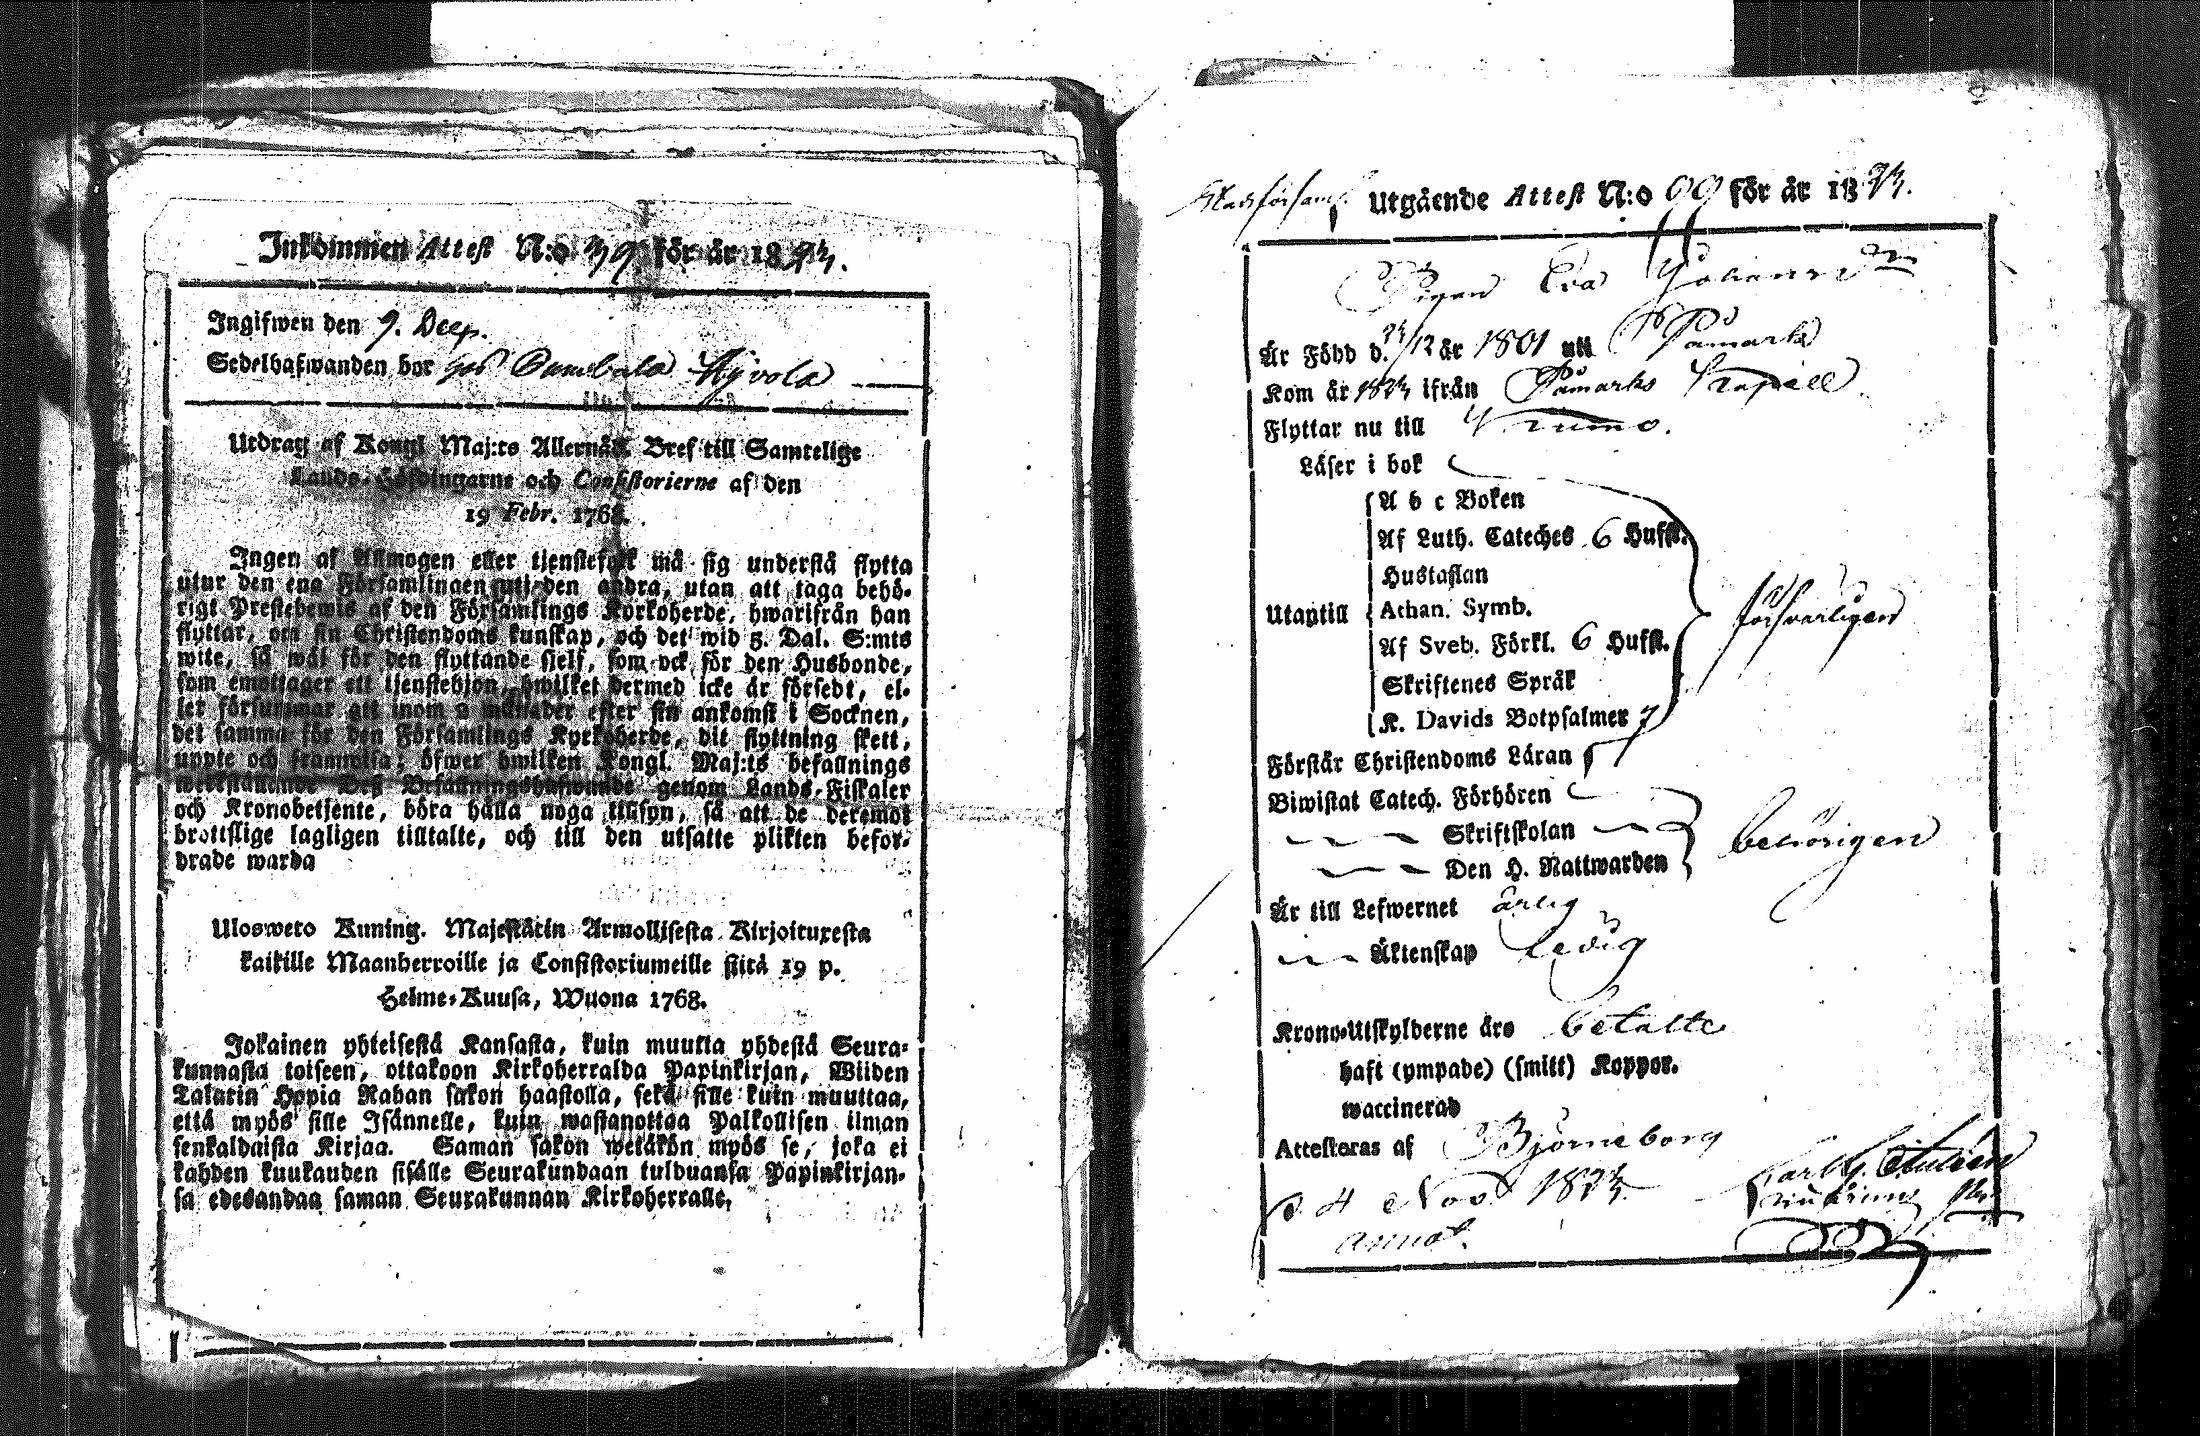 Inkommen Attest N:o 39 för år 1823.
Ingifwen den 9. Decp.
Sedelhafwanden bor hos Pumbala Kyvola
Utdrag af Kongl Maj:ts Allernåd. Bref till Samtelige
Lands-Höfdingarne och Consistorierne af den
19 Febr. 1768.
Ingen af Allmogen eller tjenstefolk må sig understå flytta
utur den ena Församlingen uti den andra, utan att taga behö-
rigt Prestebewis af den Församlings Kyrkoherde, hwarifrån han
flyttar, om sin Christendoms kunskap, och det wid 5. Dal. S:mts
wite, så wäl för den flyttande sjelf, som ock för den Husbonde,
som emottager ett tjenstehjon, hwilket dermed icke är försedt, el-
ler försummar att inom 2 månader efter sin ankomst i Socknen,
det samma för den Församlings Kyrkoherde, dit flyttning skett,
uppte och framwisa; öfwer hwilken Kongl. Maj:ts befallnings
werkställande Deß Befallningshafwande genom Lands-Fiskaler
och Kronobetjente, böra hålla noga tillsyn, så att de deremot
brottslige lagligen tilltalte, och till den utsatte plikten befor-
drade warda
Ulosweto Kuning. Majestätin Armollisesta Kirjoituxesta
kaikille Maanherroille ja Consistoriumeille siitä 19 p.
Helme-Kuusa, Wuona 1768.
Jokainen yhteisestä Kansasta, kuin muutta yhdestä Seura-
kunnasta toiseen, ottakoon Kirkoherralda Papinkirjan, Wiiden
Talarin Hopia Rahan sakon haastolla, sekä sille kuin muuttaa,
että myös sille Isännelle, kuin wastanottaa Palkollisen ilman
senkaldaista Kirjaa. Saman sakon wetäkön myös se, joka ei
kahden kuukauden sisälle Seurakundaan tulduansa Papinkirjan-
sa edesandaa saman Seurakunnan Kirkoherralle.
Stadsförsaml. Utgående Attest N:o 99 för år 1823.
Pigan Eva Johansdr
Är Född d. 24/12 år 1801 uti Påmark
Kom år 1823 ifrån Påmarks Kapell
Flyttar nu till
Läser i bok
Utantill
A b c Boken
Af Luth. Cateches 6 Hufst.
Hustaflan
Athan. Symb.
Af Sveb. Förkl. 6 Hufst.
Skriftenes Språk
K. Davids Botpsalmer 7
försvarligen
Förstår Christendoms Läran
Biwistat Catech. Förhören
Skriftskolan
Den H. Nattwarden
behörigen
Är till Lefwernet ärlig
Äktenskap ledig
Krono-Utskylderne äro betalte
haft (ympade) (smitt) Koppor.
waccinerad
Attesteras af Björneborg
d. 4 Nov 1823
annot.